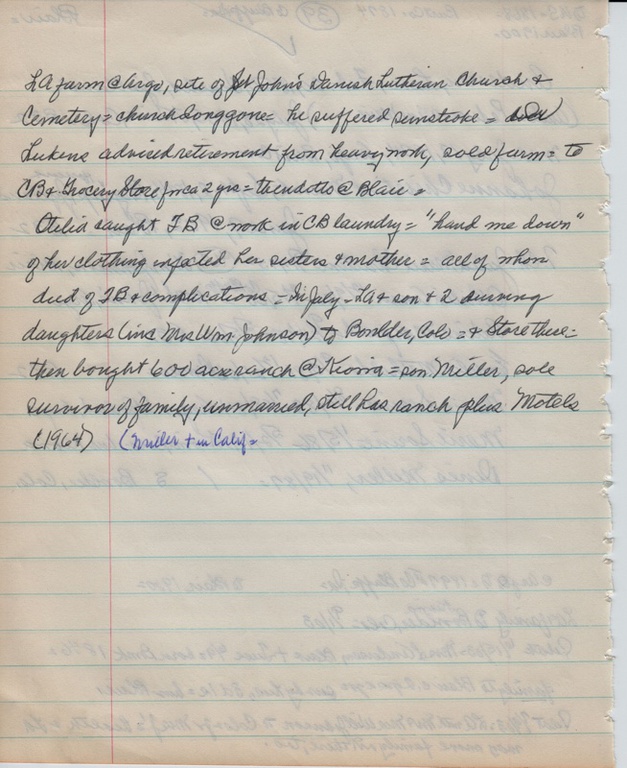 LA farm @ Argo, site of St John's Danish Lutheran Church &
Cemetery = church long gone = he suffered sunstroke =
Lukens advised retirement from heavy work, sold farm = to
CB & Grocery Store for ca 2 yrs = then dotts @ Blair =
Otelia caught TB @ work in CB laundry = "hand me down"
of her clothing infected her sisters & mother = all of whom
died of TB & complications = In July - LA & son & 2 surviving
daughters (inc Mrs Wm. Johnson) to Boulder, Colo = & Store there =
then bought 600 acre ranch @ Kiowa = son Miller, sole
survivor of family, unmarried, still has ranch plus Motels
(1964) (Miller + in Calif =